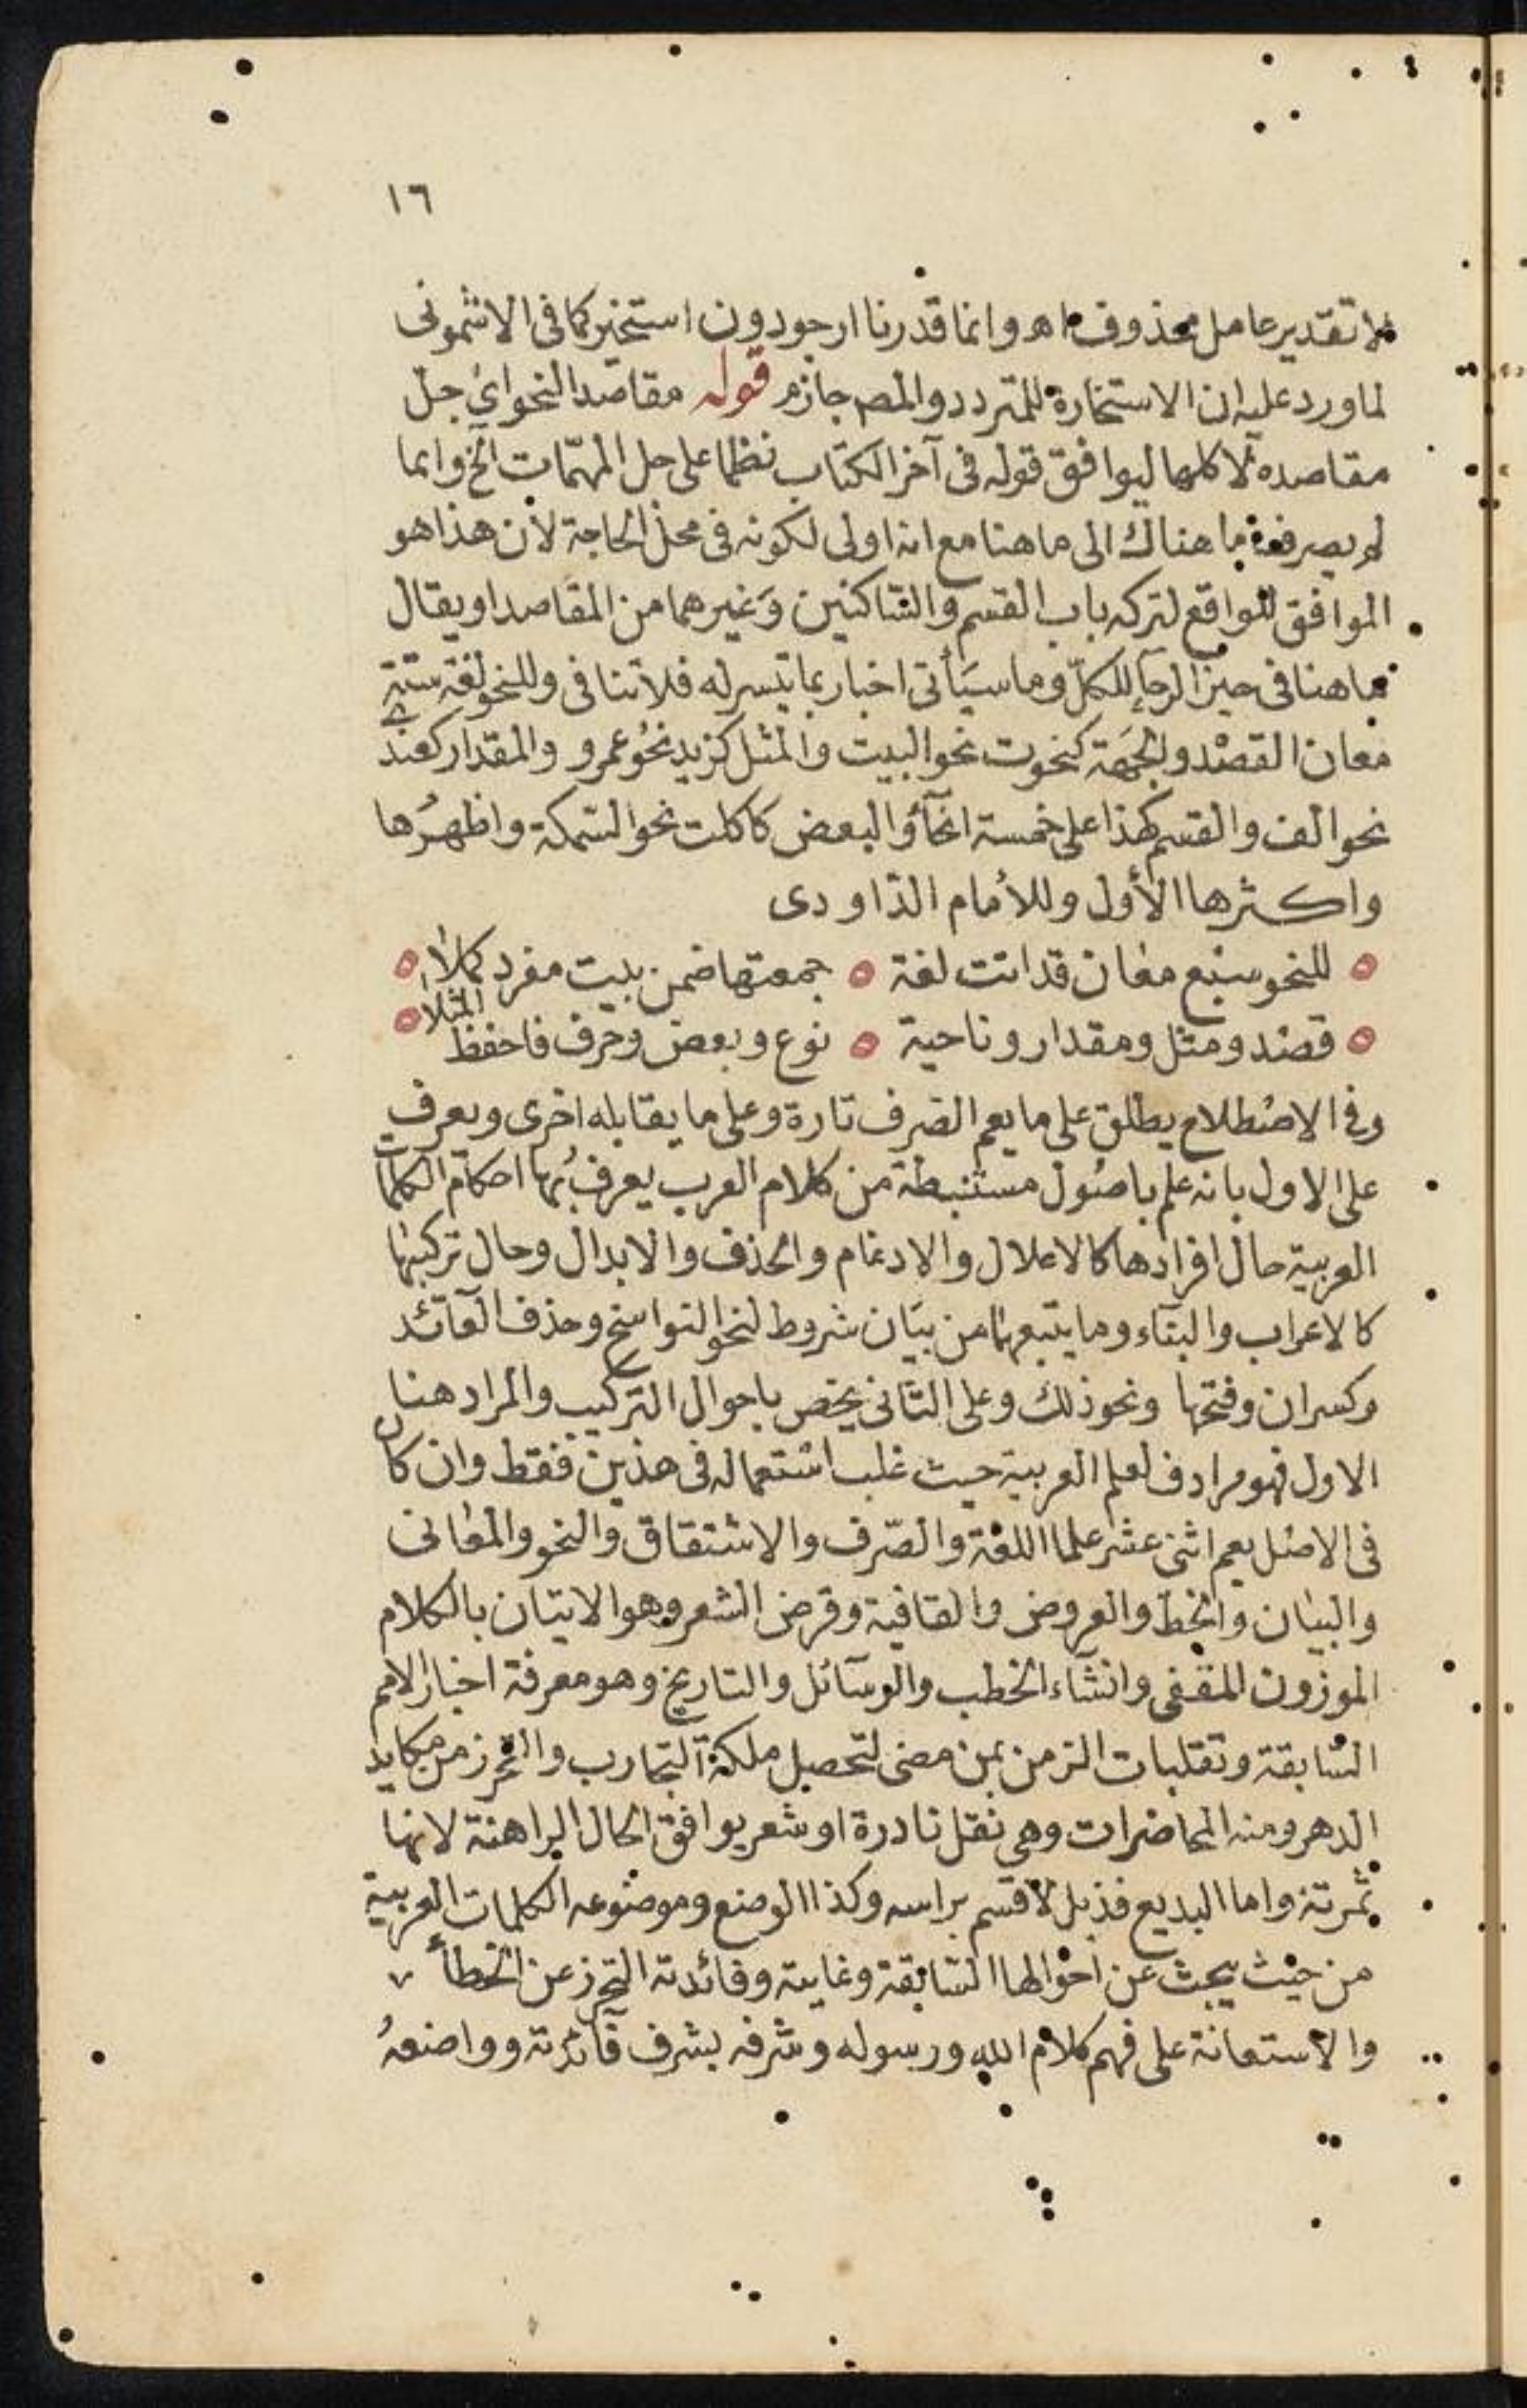 ١٦
لا تقدير عامل محذوف اه وانما قدرنا ارجو دون استخير كما فى الاشمونى
لما ورد عليه ان الاستخارة للمتردد والمص جازم قوله مقاصد النحو اى جل
مقاصده لا كلها ليوافق قوله فى آخر الكتاب نظما على جل المهمّات الخ وانما
لم يصرفه ما هناك الى ما هنا مع انه اولى لكونه فى محل الحاجة لأن هذا هو
الموافق للواقع لتركه باب القسم والساكنين وَغيرهما من المقاصد او يقال
ما هنا فى حيز الرجآ للكلّ وما سيَأتى اخبار بما تيسر له فلا تنافى وللنحو لغة ستة
معان القصْد والجهَة كنحوت نحو البيت والمثل كزيد نحوُ عمرو والمقدار كعندى
نحو الف والقسم كهذا على خمسة انحآء والبعض كاكلت نحو السمكة واظهرُها
واكثرها الأول وللأمام الداودى
للنحو سبْع معان قد اتت لغة جمعتها ضمن بيت مفرد كملا
قصْد ومثل ومقدار وناحية نوع وبعض وحرف فاحفظ المثلا
وفى الاصْطلاح يطلق على ما يعم الصرف تارة وعلى ما يقابله اخرى ويعرف
على الاول بانه علم باصُول مستنبطة من كلام العرب يعرف بُها احكام الكلمآت
العربية حال افرادها كالاعلال والادغام والحذف والابدال وحال تركيبها
كالاعراب والبنآء وما يتبعهما من بيَان شروط لنحو النواسخ وحذف العآئد
وكسر ان وفتحها ونحو ذلك وعلى الثانى يخص باحوال التركيب والمراد هنا
الاول فهو مرادف لعلم العربية حيث غلب استعماله فى هذين فقط وان كان
فى الاصْل يعم اثنى عشر علما اللغة والصّرف والاشتقاق والنحو والمعانى
والبيان والخط والعروض والقافية وقرض الشعر وهو الاتيان بالكلام
الموزون المقفى وانشآء الخطب والرسآئل والتاريخ وهو معرفة اخبار الامم
السَابقة وتقلبات الزمن بمن مضى لتحصيل ملكة التجارب والتحرز من مكايد
الدهر ومنه المحاضرات وهى نقل نادرة او شعر يوافق الحال الراهنة لانها
ثمرته واما البديع فذيل لا قسم براسه وكذا الوضع وموضوعه الكلمات العربية
من حيْث يبحث عن احْوالها السَابقة وغايته وفائدته التحرز عن الخطأ
والاستعانة على فهم كلام الله ورسوله وشرفه بشرف فآئدته وواضعهُ